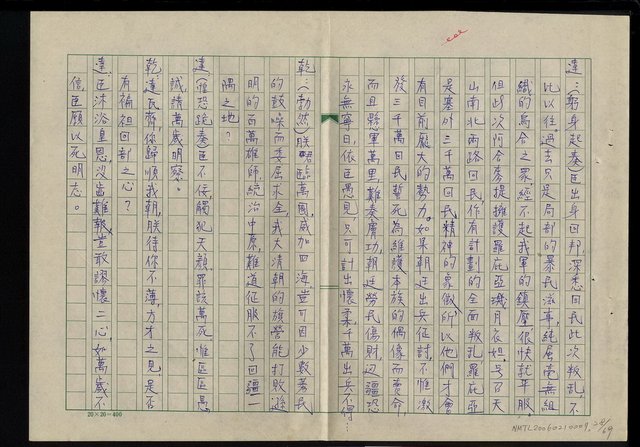 達：（躬身起奏）臣出身回邦，深悉回民此次叛乱，不
比以往。過去只是局部的暴民滋事，純屬毫無組
織的烏合之眾，經不起我軍的鎮壓，很快就平服。
但此次阿合奇提擁護羅庇亞璣月衣妲，号召天
山南北兩路回民，作有計劃的全面叛乱。羅庇亞
是塞外三千萬回民精神的象徵，所以他們才會
有目前龐大的勢力。如果朝廷出兵征討，不惟激
發三千萬回民誓死為維護本族的偶像而賣命，
而且懸軍萬里，難奏膚功，朝廷勞民傷財，边疆恐
永無寧日，依臣愚見，只可計出懷柔，千萬出兵不得…
乾：（勃然）朕 臨萬國，威加四海，豈可因少數暴民
的鼓噪而委屈求全，我大清朝的旗營能打敗
明的百萬雄師統治中原，難道征服不了回疆一
隅之地？
達：（惶恐跪奏）臣不佞，觸犯天顏，罪該萬死，惟區區愚
誠，請萬歲明察。
乾：達瓦齊，你歸順我朝，朕待你不薄，方才之見，是否
有袒回部之心？
達：臣沐浴皇恩，沒齒難報，豈敢謬懷二心，如萬歲不
信，臣願以死明志。
20×20=400
NMTL20060210009, 28/69